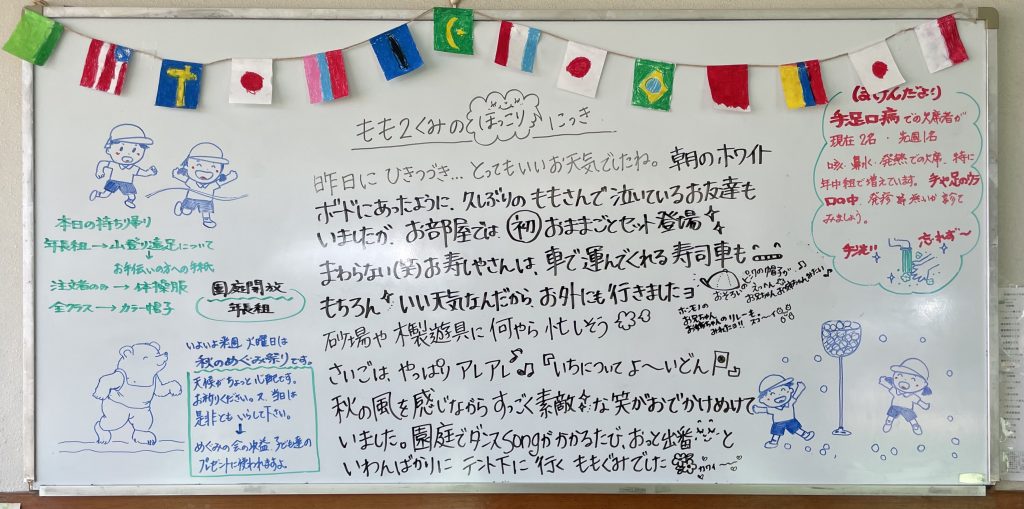 もも2くみの ほっこり にっき
昨日に ひきつづき… とってもいいお天気でしたね。朝のホワイト
ボードにあったように、久しぶりの ももさんで 泣いているお友達も
いましたが、お部屋では、初 おままごとセット登場
まわらない(笑)お寿しやさんは、車で運んでくれる寿司車も
もちろん いい天気なんだから、お外にも行きましたヨ
砂場や 木製遊具に 何やら 忙しそう
さいごは、やっぱり アレアレ♪ 『いちについて よ〜いどん』
秋の風を感じながら すっごく素敵な笑がおでかけぬけて
いました。園庭でダンスsongがかかるたび、おっと出番 と
いわんばかりに テント下に 行く ももぐみでした
カワイ〜
おそろいの
ピンクの帽子が
えっへん
お兄ちゃん、お姉ちゃんみたい
ホンモノの
お兄ちゃん
お姉ちゃんのリレーも
みれたヨ!! スゴーイ
本日の持ち帰り
年長組→山登り遠足について
↓
お手伝いの方への手紙
注文者のみ→体操服
全クラス→カラー帽子
園庭開放
年長組
いよいよ来週 火曜日は
秋のめぐみ祭りです。
天候がちょっと心配です。
お祈りください。又、当日は
是非ともいらして下さい。
↓
めぐみの会の収益、子ども達の
プレゼントに使われますよ
ほけんだより
手足口病での欠席者が
現在2名・先週1名
咳・鼻水・発熱での欠席、特に
年中組で増えています。手や足の方
口の中、発疹等無いか診て
みましょう。
手洗い 忘れず〜